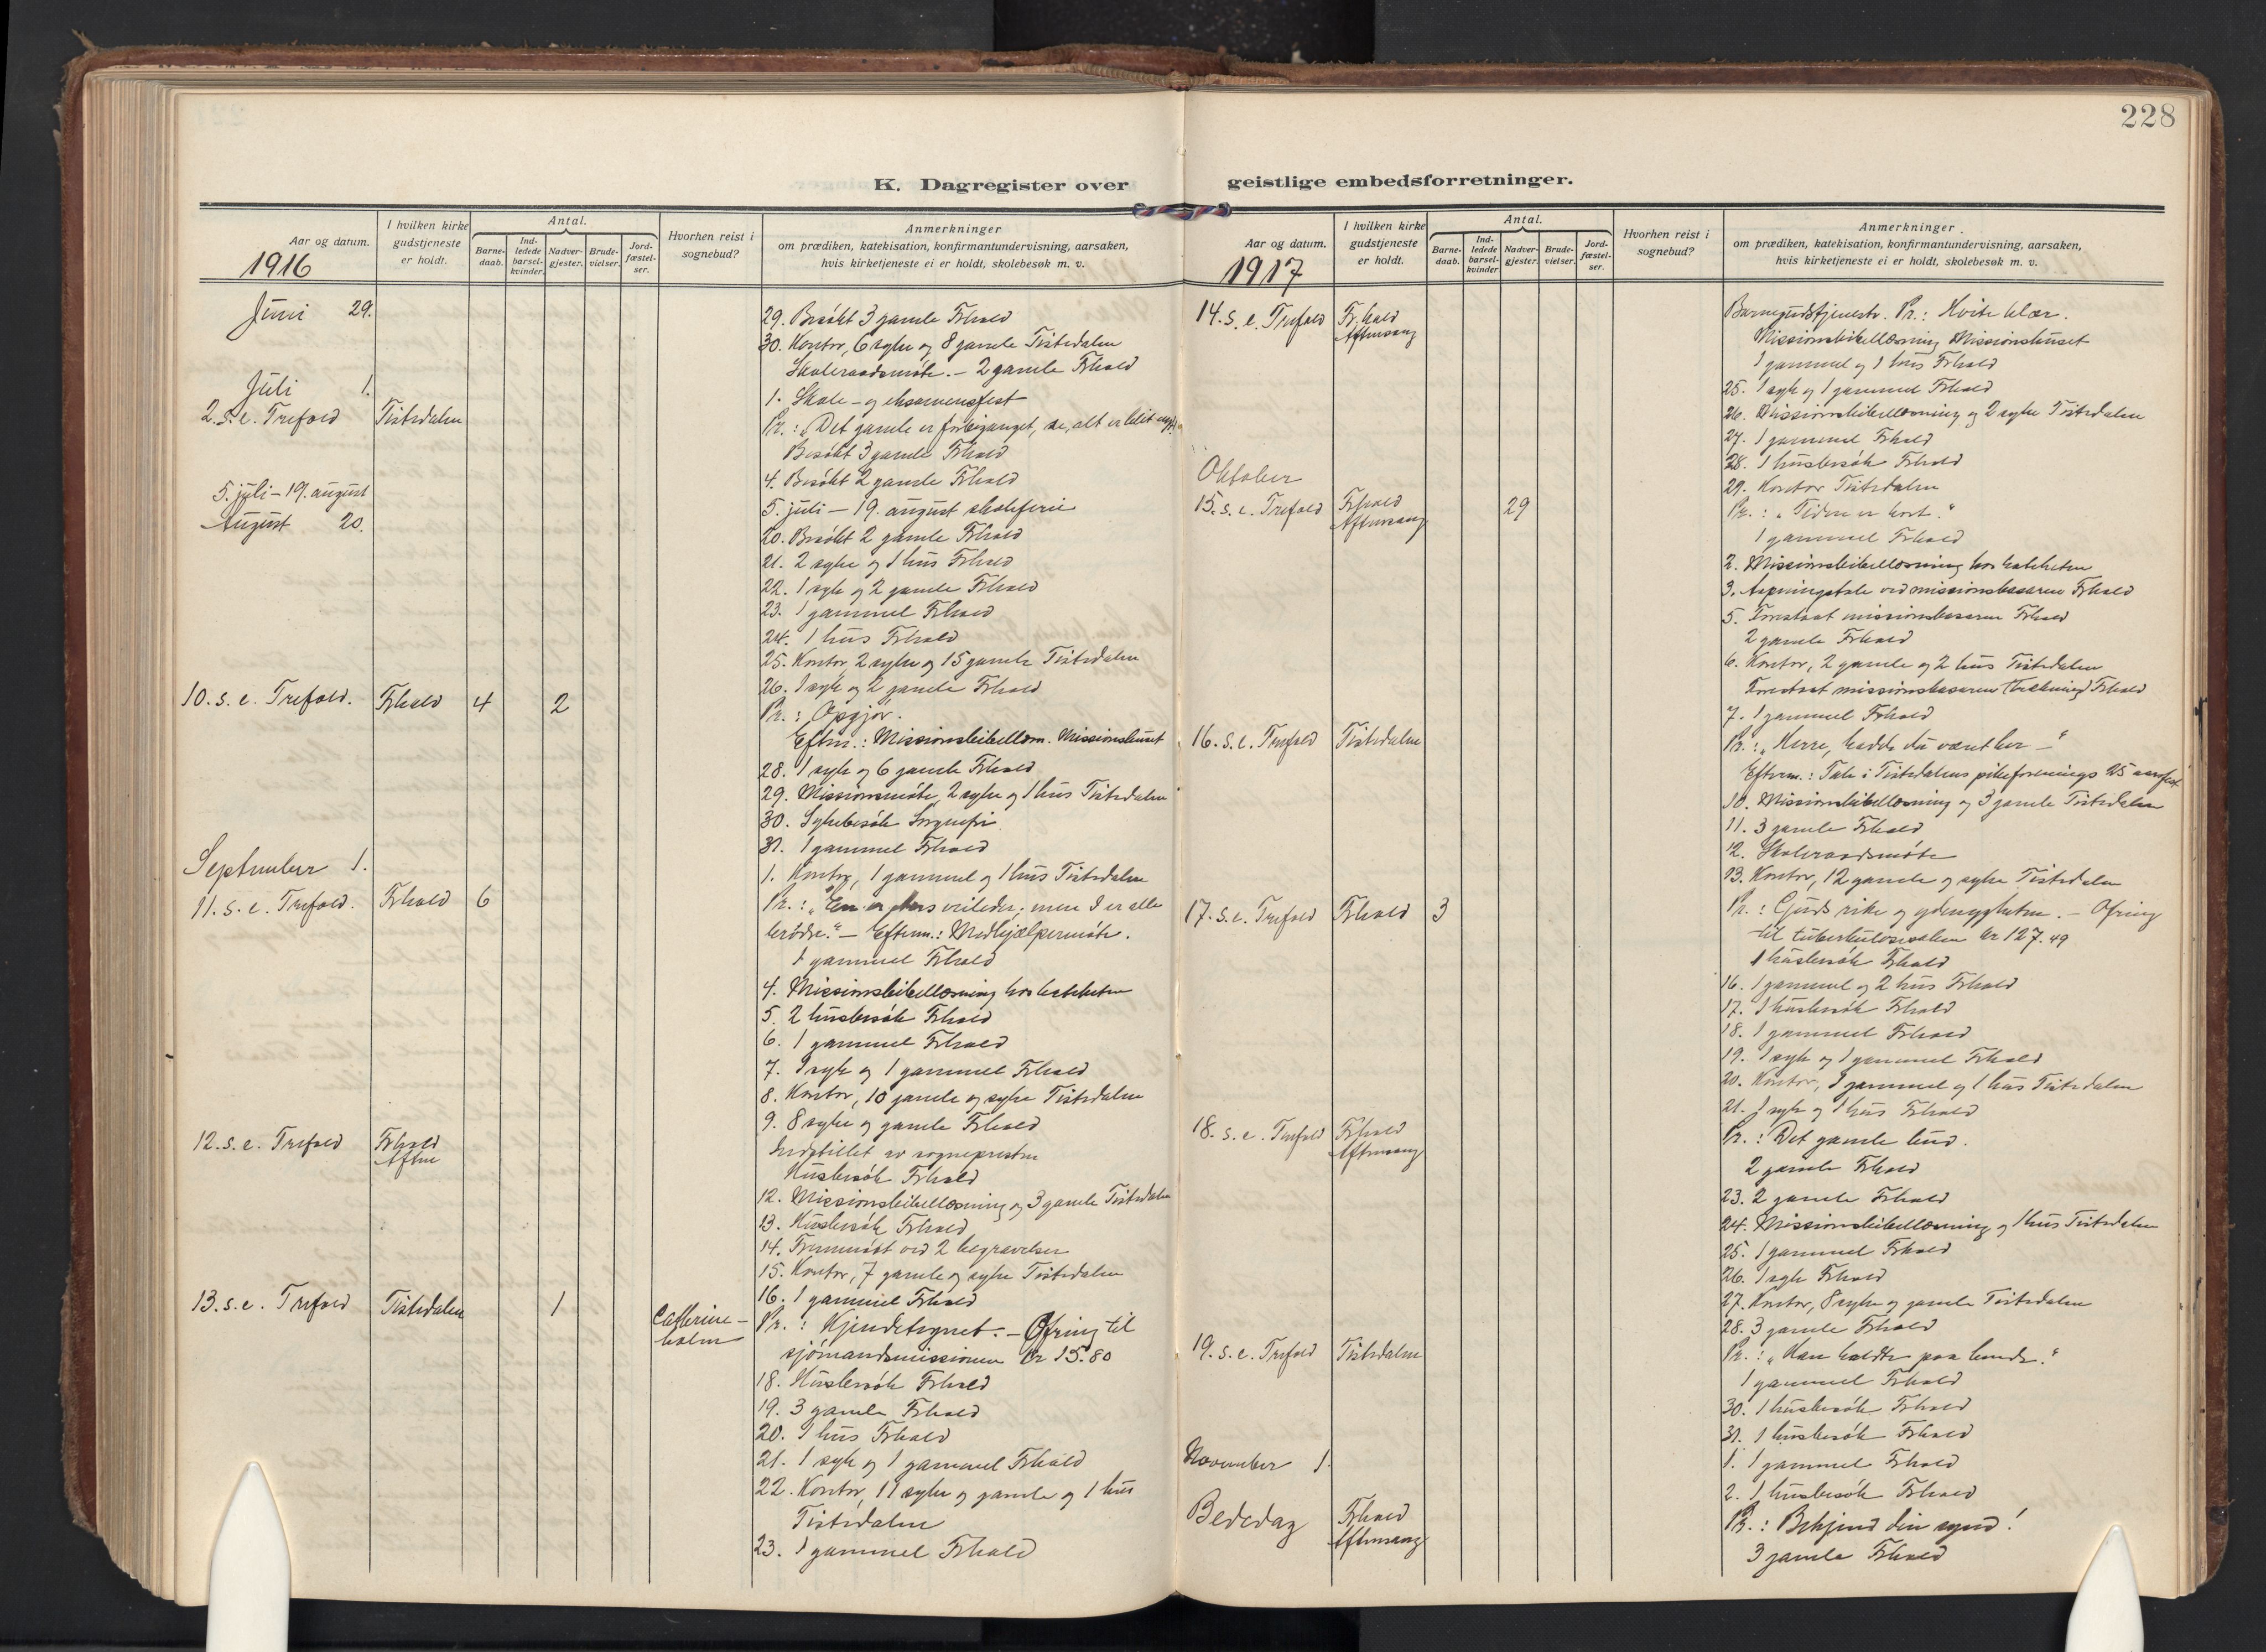 228
K. Dagregister over
Aar og datum.
I hvilken kirke gudstjeneste er holdt.
Antal.
Barnedaab.
Indledede barselkvinder.
Nadvergjester.
Brudevielser.
Jordfæstelser.
Hvorhen reist i sognebud?
Anmerkninger
om prædiken, katekisation, konfirmantundervisning, aarsaken,
hvis kirketjeneste ei er holdt, skolebesøk m. v.
1916
Juni 29.
29. Besökt 3 gamle Frhald
30. Kontor, 6 syke og 8 gamle Tistedalen
Skoleraadsmöte. – 2 gamle Frhald
Juli 1.
1. Skole- og eksamensfest
2. S. e. Trefold Tistedalen
Pr.: „Det gamle er forbiganget, se, alt er blit nyt"
Besökt 3 gamle Frhald
4. Besökt 2 gamle Frhald
5. juli – 19. august
5. juli – 19. august skoleferie
August 20.
20. Besökt 2 gamle Frhald
21. 2 syke og 1 hus Frhald
22. 1 syk og 2 gamle Frhald
23. 1 gammel Frhald
24. 1 hus Frhald
25. Kontor, 2 syke og 15 gamle Tistedalen
26. 1 syk og 2 gamle Frhald
10. s. e. Trefold. Frhald 4 2
Pr.: Opgjör.
Efterm.: Missionsbibellæsn. Missionshuset
28. 1 syk og 6 gamle Frhald
29. Missionsmöte, 2 syke og 1 hus Tistedalen
30. Sykebesök
31. 1 gammel Frhald
September 1.
1. Kontor, 1 gammel og 1 hus Tistedalen
11. s. e. Trefold. Frhald 6
Pr.: „En er eders veileder, men I er alle
brödre." – Efterm.: Medhjælpermöte.
1 gammel Frhald
4. Missionsbibellæsning hos kateketen
5. 2 husbesök Frhald
6. 1 gammel Frhald
7. 1 syk og 1 gammel Frhald
8. Kontor, 10 gamle og syke Tistedalen
9. 8 syke og gamle Frhald
12. s. e. Trefold Frhald Aftns
Indstillet av sognepresten
Husbesök Frhald
12. Missionsbibellæsning og 3 gamle Tistedalen
13. Husbesök Frhald
14. Fremmöt ved 2 begravelser
15. Kontor, 7 gamle og syke Tistedalen
16. 1 gammel Frhald
13. s. e. Trefold Tistedalen 1 Cathrineholm
Pr.: Kjendetegnet. – Ofring til
sjömandsmissionen kr 15.80
18. Husbesök Frhald
19. 3 gamle Frhald
20. 1 hus Frhald
21. 1 syk og 1 gammel Frhald
22. Kontor, 11 syke og gamle og 1 hus
Tistedalen
23. 1 gammel Frhald
geistlige embedsforretninger.
Aar og datum.
I hvilken kirke gudstjeneste er holdt.
Antal.
Barnedaab.
Indledede barselkvinder.
Nadvergjester.
Brudevielser.
Jordfæstelser.
Hvorhen reist i sognebud?
Anmerkninger
om prædiken, katekisation, konfirmantundervisning, aarsaken,
hvis kirketjeneste ei er holdt, skolebesøk m. v.
1917
14. s. e. Trefold Fr.hald Aftensang
Barnegudstjeneste. Pr.: Hvite klær.
Missionsbibellæsning Missionshuset
1 gammel og 1 hus Frhald
25. 1 syk og 1 gammel Frhald
26. Missionsbibellæsning og 2 syke Tistedalen
27. 1 gammel Frhald
28. 1 husbesök Frhald
Oktober
29. Kontor Tistedalen
15. s. e. Trefold Frhald Aftensang 29
Pr.: „Tiden er kort."
1 gammel Frhald
2. Missionsbibellæsning hos kateketen
3. Aapningstale ved missionsbasaren Frhald
5. Forestaat missionsbasaren Frhald
2 gamle Frhald
6. Kontor, 2 gamle og 2 hus Tistedalen
Forestaat missionsbasaren (trækning) Frhald
7. 1 gammel Frhald
16. s. e. Trefold Tistedalen
Pr.: „Herre, hadde du været her –"
Efterm.: Tale i Tistedalens pikeforenings 25 aarsfest
10. Missionsbibellæsning og 3 gamle Tistedalen
11. 3 gamle Frhald
12. Skoleraadsmöte
13. Kontor, 12 gamle og syke Tistedalen
17. s. e. Trefold Frhald 3
Pr.: Guds rike og ydmygheten. – Ofring
til tuberkulosesaken kr 127.49
1 husbesök Frhald
16. 1 gammel og 2 hus Frhald
17. 1 husbesök Frhald
18. 1 gammel Frhald
19. 1 syk og 1 gammel Frhald
20. Kontor, 1 gammel og 1 hus Tistedalen
21. 1 syk og 1 hus Frhald
18. s. e. Trefold Frhald Aftensang
Pr.: Det gamle bud.
2 gamle Frhald
23. 2 gamle Frhald
24. Missionsbibellæsning og 1 hus Tistedalen
25. 1 gammel Frhald
26. 1 syk Frhald
27. Kontor, 8 syke og gamle Tistedalen
28. 3 gamle Frhald
19. s. e. Trefold Tistedalen
Pr.: „Han kaldte paa hende."
1 gammel Frhald
30. 1 husbesök Frhald
31. 1 husbesök Frhald
November 1.
1. 1 gammel Frhald
2. 1 husbesök Frhald
Bededag Frhald Aftensang
Pr.: Bekjend din synd!
3 gamle Frhald